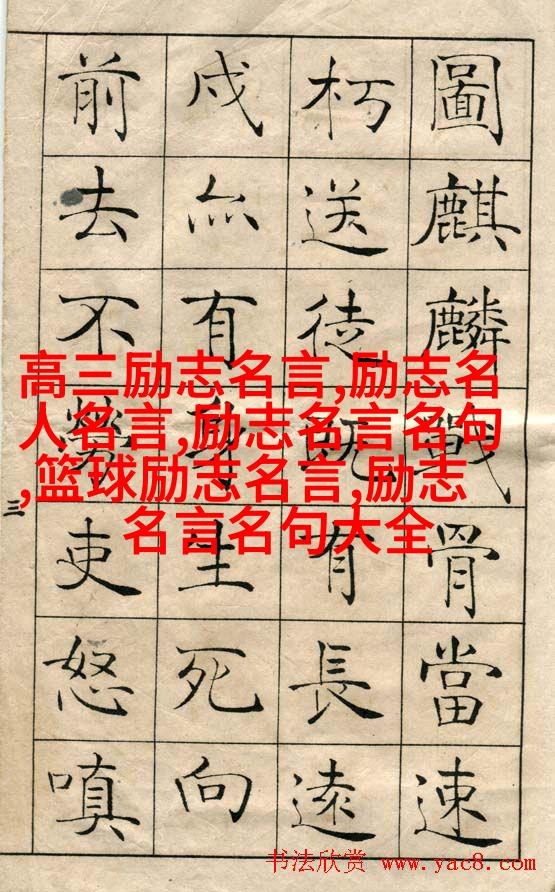 圖麒麟戰骨當速
朽送徒既有長遠
戍亦有身生死向
前去不勞吏怒嗔
三
高三励志名言,励志名
人名言,励志名言名句
,篮球励志名言,励志
名言名句大全
书法欣赏 www.yac8.com